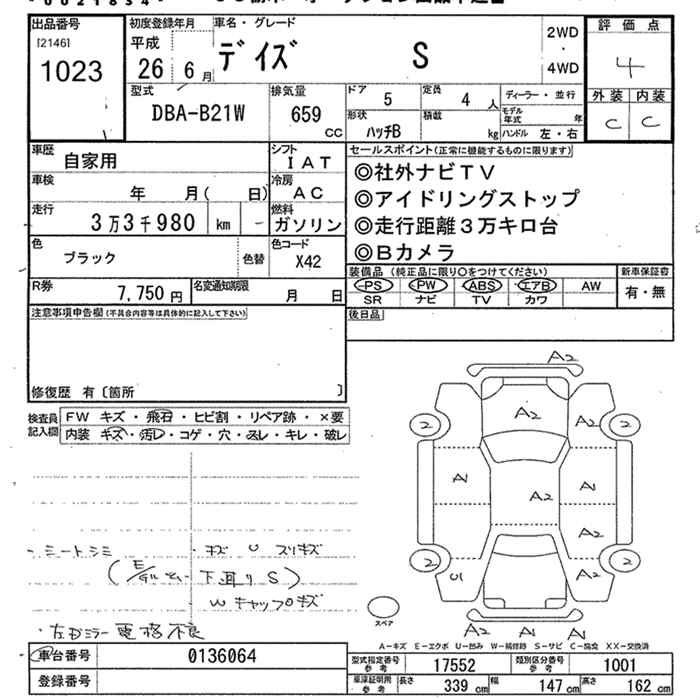 出品番号 初度登録年月 車名・グレード 2WD 評価点
[2146] 平成 ・
1023 26 6月 デイズ S 4WD 4
型式 排気量 ドア 5 定員 4人 ディーラー・並行 外装 内装
DBA-B21W 659 CC 形状 ハッチB 積載 kg モデル年式 年 C C
ハンドル 左・右
車歴 自家用 シフト IAT セールスポイント(正常に機能するものに限ります)
車検 年 月( 日) 冷房 AC ◎社外ナビTV
走行 3万3千980 km 燃料 ガソリン ◎アイドリングストップ
◎走行距離3万キロ台
色 ブラック 色替 色コード X42 ◎Bカメラ
R券 7,750円 名変通知期限 月 日 装備品(純正品に限り○をつけてください) 新車保証書
PS PW ABS エアB AW 有・無
SR ナビ TV カワ
注意事項申告欄(不具合内容等は具体的に記入して下さい) 後日品
修復歴 有〔箇所 〕
検査員 FW キズ・飛石・ヒビ割・リペア跡・×要
記入欄 内装 キズ・汚レ・コゲ・穴・スレ・キレ・破レ
A2
2 A2 A2 2
A1 A2 A1
A2
2 U1 A2 2
A2 A1 A1
スペア
・シートシミ ・キズ U スリキズ
下廻りS)
Wキャップキズ
・左右ミラー電格不良
A-キズ E-エクボ U-凹み W-補修跡 S-サビ C-腐食 XX-交換済
車台番号 0136064 型式指定番号 参考 17552 類別区分番号 参考 1001
登録番号 車庫証明用 参考 長さ 339 cm 幅 147 cm 高さ 162 cm